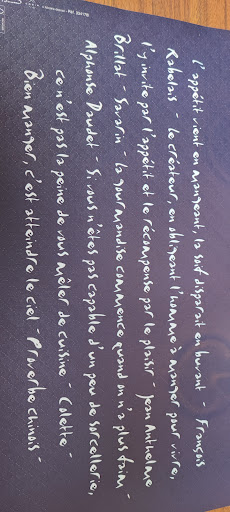 L'appétit vient en mangeant, la soif disparait en buvant - François
Rabelais - Le créateur, en obligeant l'homme à manger pour vivre,
l'y invite par l'appétit et le récompense par le plaisir - Jean Anthelme
Brillat - Savarin - La gourmandise commence quand on n'a plus faim -
Alphonse Daudet - Si vous n'êtes pas capable d'un peu de sorcellerie,
ce n'est pas la peine de vous mêler de cuisine - Colette -
Bien manger, c'est atteindre le ciel - Proverbe chinois -